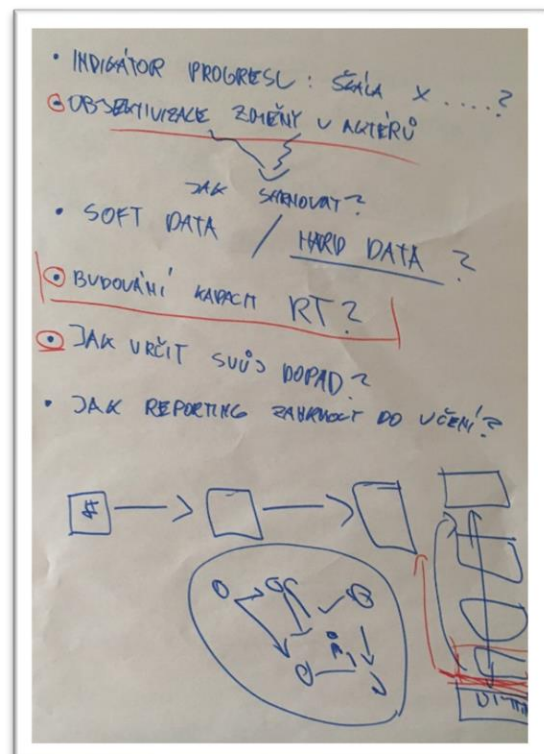 • INDIGÁTOR PROGRESU: ŠKÁLA X ....?
• OBJEKTIVIZACE ZMĚNY U AKTÉRŮ
JAK SHRNOVAT?
• SOFT DATA / HARD DATA ?
• BUDOVÁNÍ KAPACIT RT?
• JAK URČIT SVŮJ DOPAD?
• JAK REPORTING ZAHRNOUT DO UČENÍ?
#